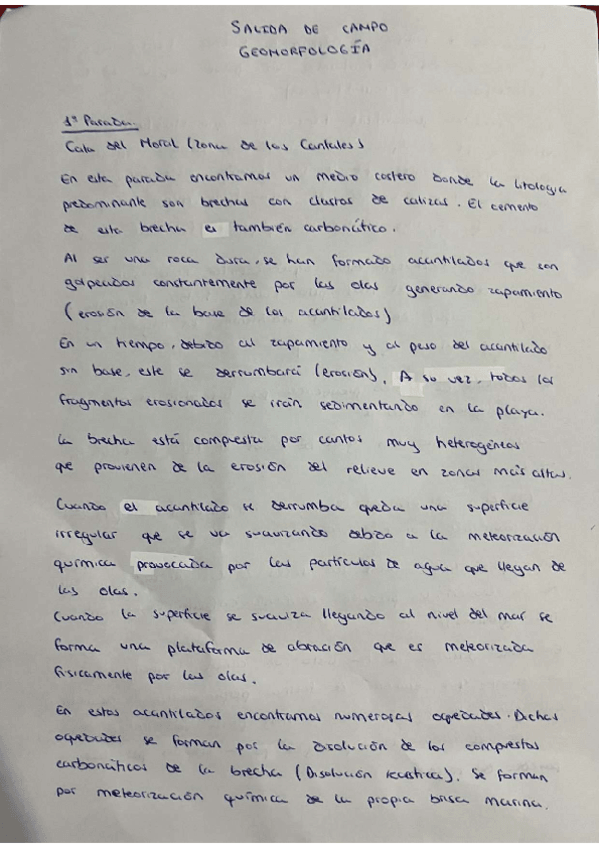 SALIDA DE CAMPO
GEOMORFOLOGÍA
1ª Parada.
Cala del Moral (zona de los Cantales)
En esta parada encontramos un medio costero donde la litología
predominante son brechas con clastos de calizas. El cemento
de esta brecha es también carbonático.
Al ser una roca dura, se han formado acantilados que son
golpeados constantemente por las olas generando zapamiento
(erosión de la base de los acantilados)
En un tiempo, debido al zapamiento y al peso del acantilado
sin base, este se derrumbará (erosión). A su vez, todos los
fragmentos erosionados se irán sedimentando en la playa.
La brecha está compuesta por cantos muy heterogéneos
que provienen de la erosión del relieve en zonas más altas.
Cuando el acantilado se derrumba queda una superficie
irregular que se va suavizando debido a la meteorización
química provocada por las partículas de agua que llegan de
las olas.
Cuando la superficie se suaviza llegando al nivel del mar se
forma una plataforma de abración que es meteorizada
físicamente por las olas.
En estos acantilados encontramos numerosas oquedades. Dichas
oquedades se forman por la disolución de los compuestos
carbonáticos de la brecha (Disolución). Se forman
por meteorización química de la propia brisa marina.